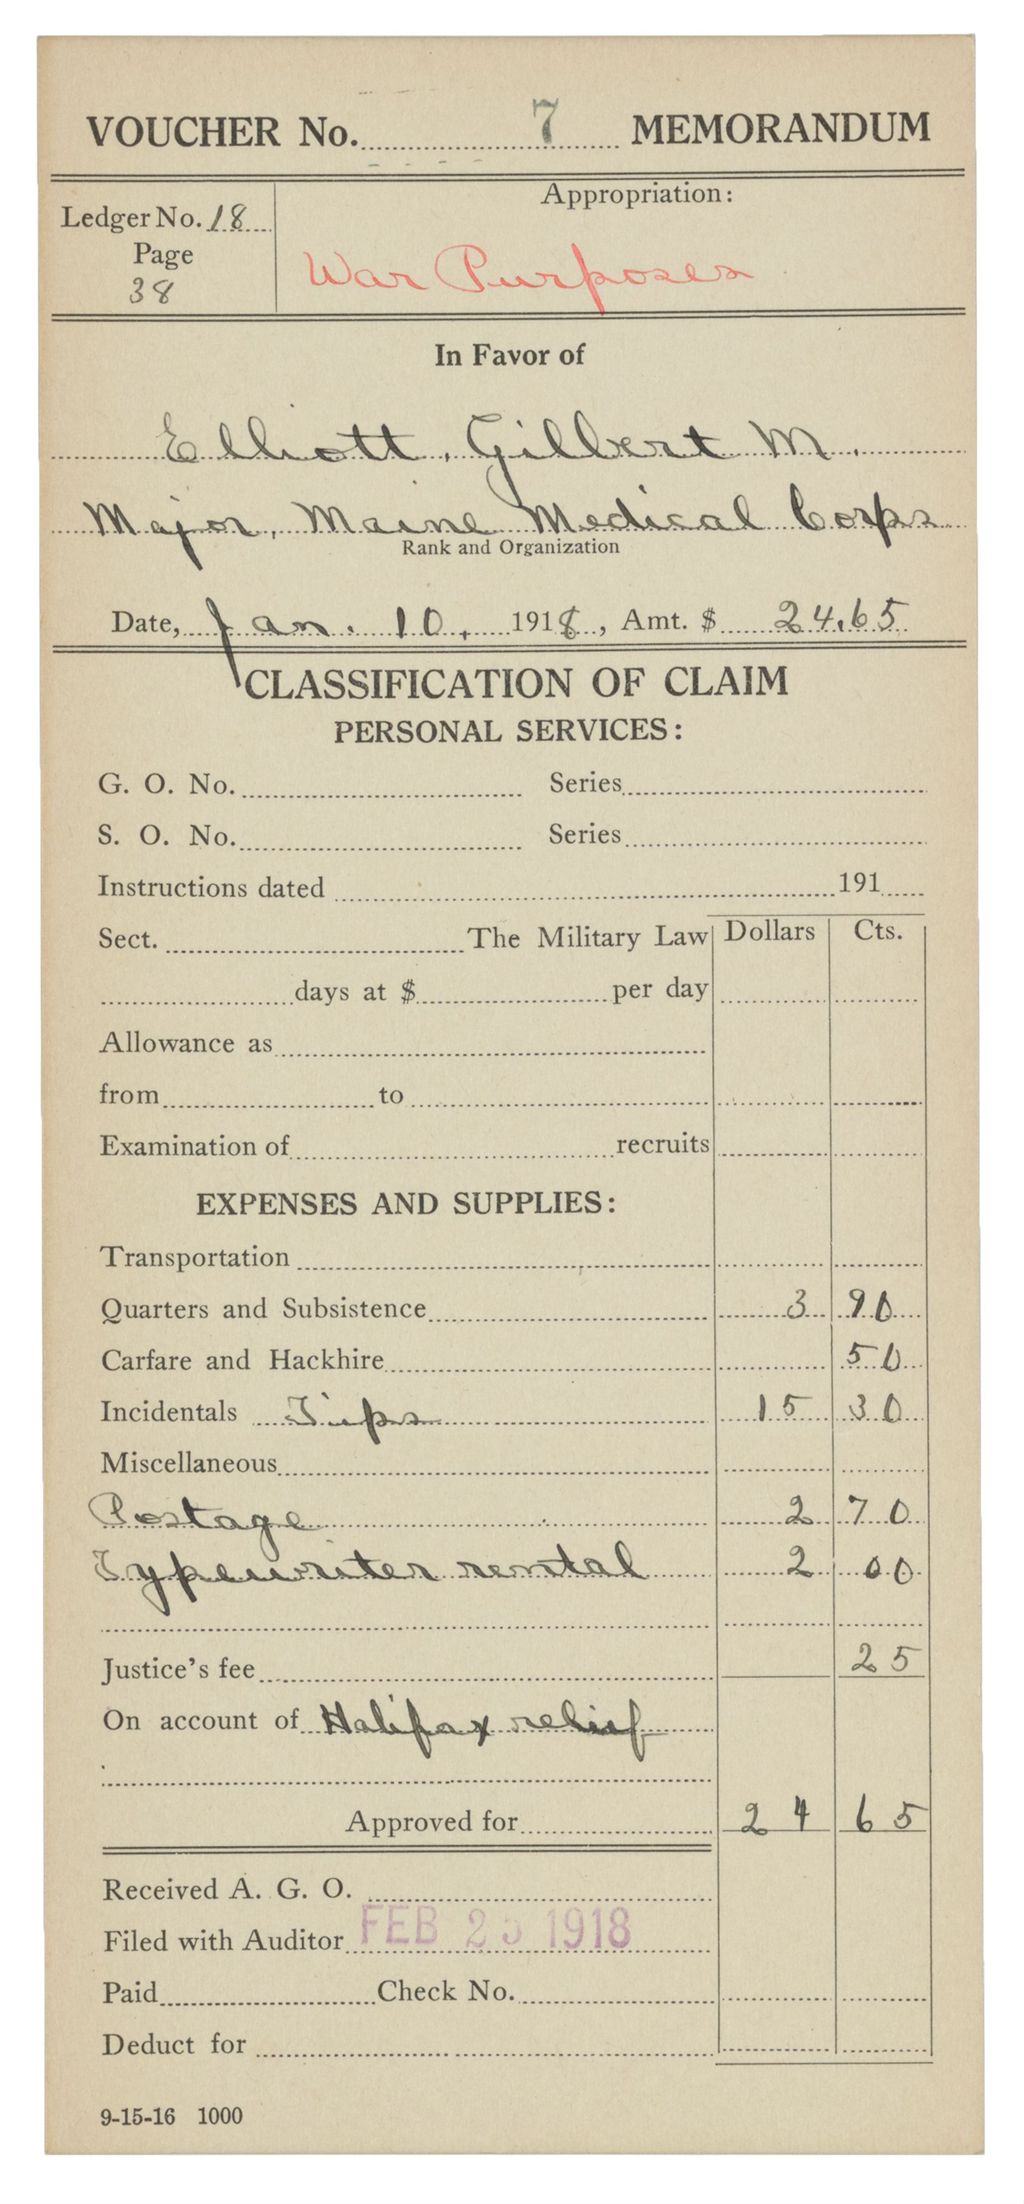 VOUCHER No. 7 MEMORANDUM
Ledger No. 18
Page
38
Appropriation:
War Purposes
In Favor of
Elliott, Gilbert M.
Major, Maine Medical Corps
Rank and Organization
Date, Jan. 10, 1918, Amt. $ 24.65
CLASSIFICATION OF CLAIM
PERSONAL SERVICES:
G. O. No. Series
S. O. No. Series
Instructions dated 191
Sect. The Military Law Dollars Cts.
days at $ per day
Allowance as
from to
Examination of recruits
EXPENSES AND SUPPLIES:
Transportation
Quarters and Subsistence 3 90
Carfare and Hackhire 50
Incidentals Tips 15 30
Miscellaneous
Postage 2 70
Typewriter rental 2 00
Justice's fee 25
On account of Halifax relief
Approved for 24 65
Received A. G. O.
Filed with Auditor FEB 25 1918
Paid Check No.
Deduct for
9-15-16 1000